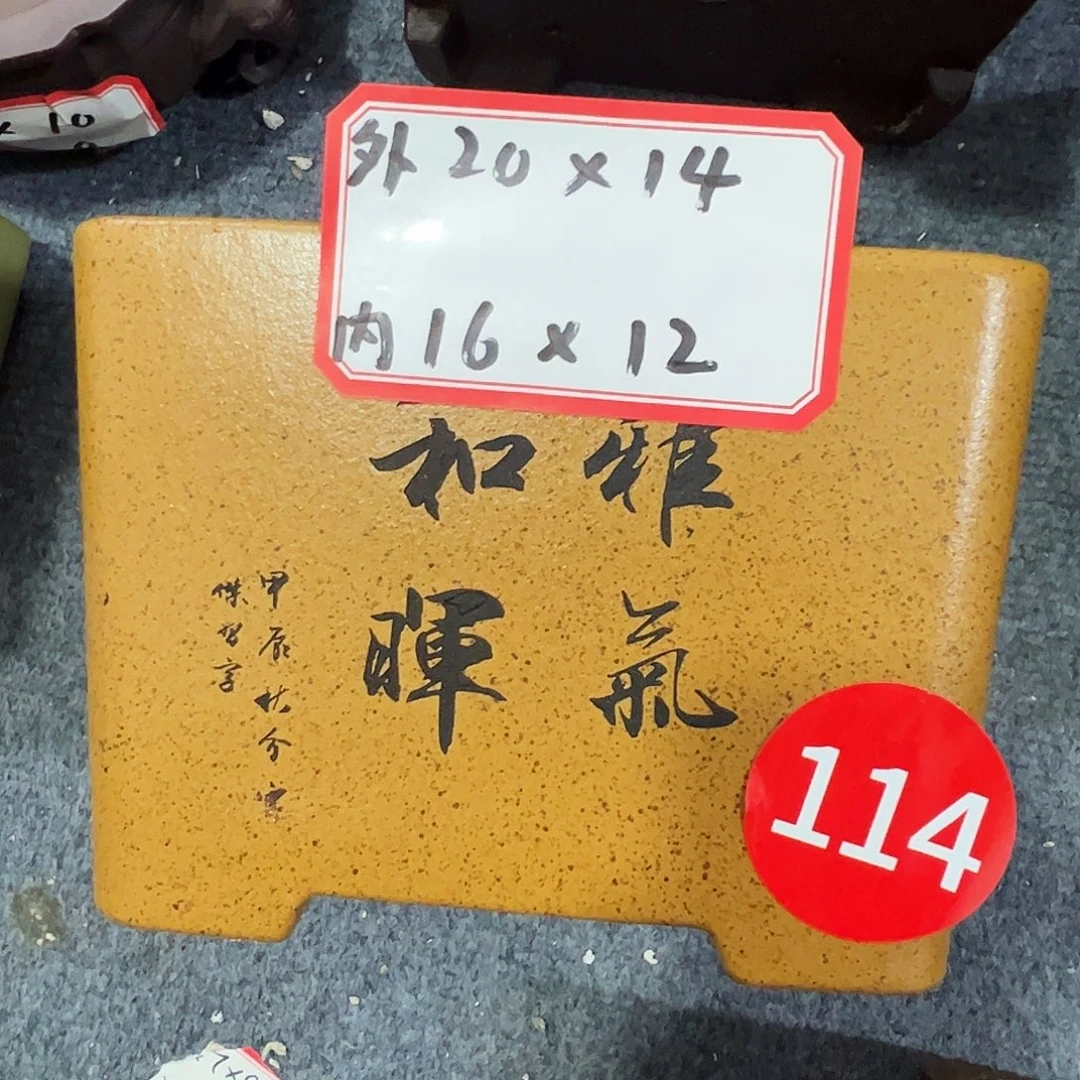 外 20 x 14
内 16 x 12
雅氣
和暉
甲辰秋分寫
傑智字
114
x 10